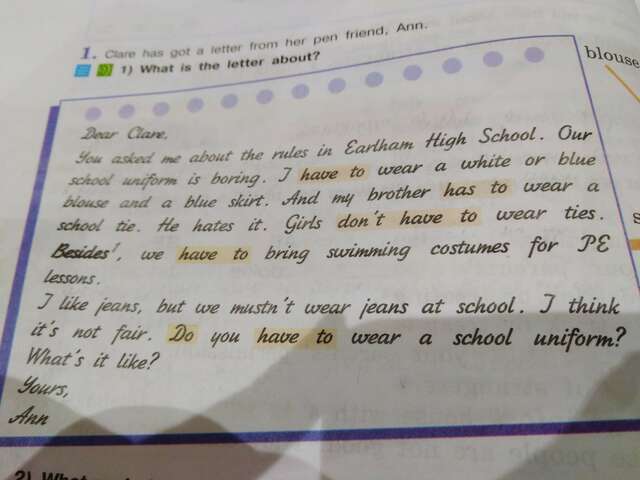 1. Clare has got a letter from her pen friend, Ann.
1) What is the letter about?
blouse
Dear Clare,
You asked me about the rules in Earlham High School. Our
school uniform is boring. I have to wear a white or blue
blouse and a blue skirt. And my brother has to wear a
school tie. He hates it. Girls don't have to wear ties.
Besides¹, we have to bring swimming costumes for PE
lessons.
I like jeans, but we mustn't wear jeans at school. I think
it's not fair. Do you have to wear a school uniform?
What's it like?
Yours,
Ann